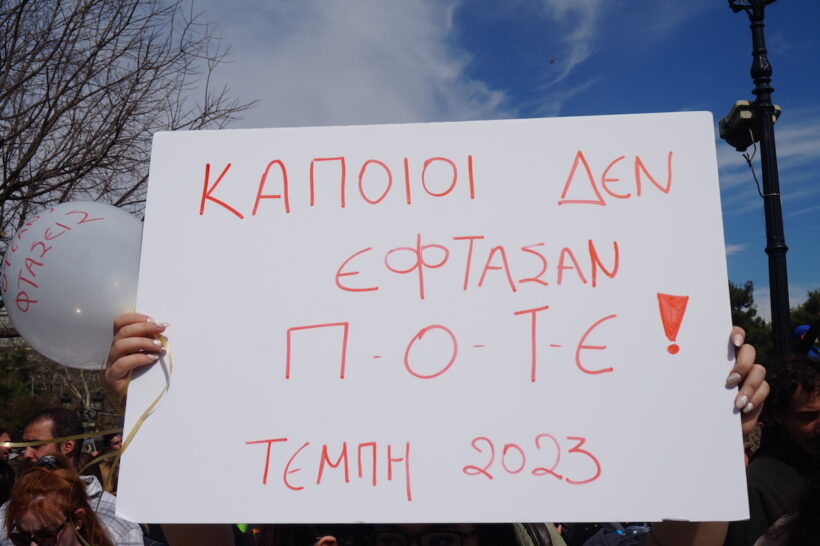 ΚΑΠΟΙΟΙ ΔΕΝ
ΕΦΤΑΣΑΝ
Π-Ο-Τ-Ε!
ΤΕΜΠΗ 2023
ΦΤΑΣΕΙΣ